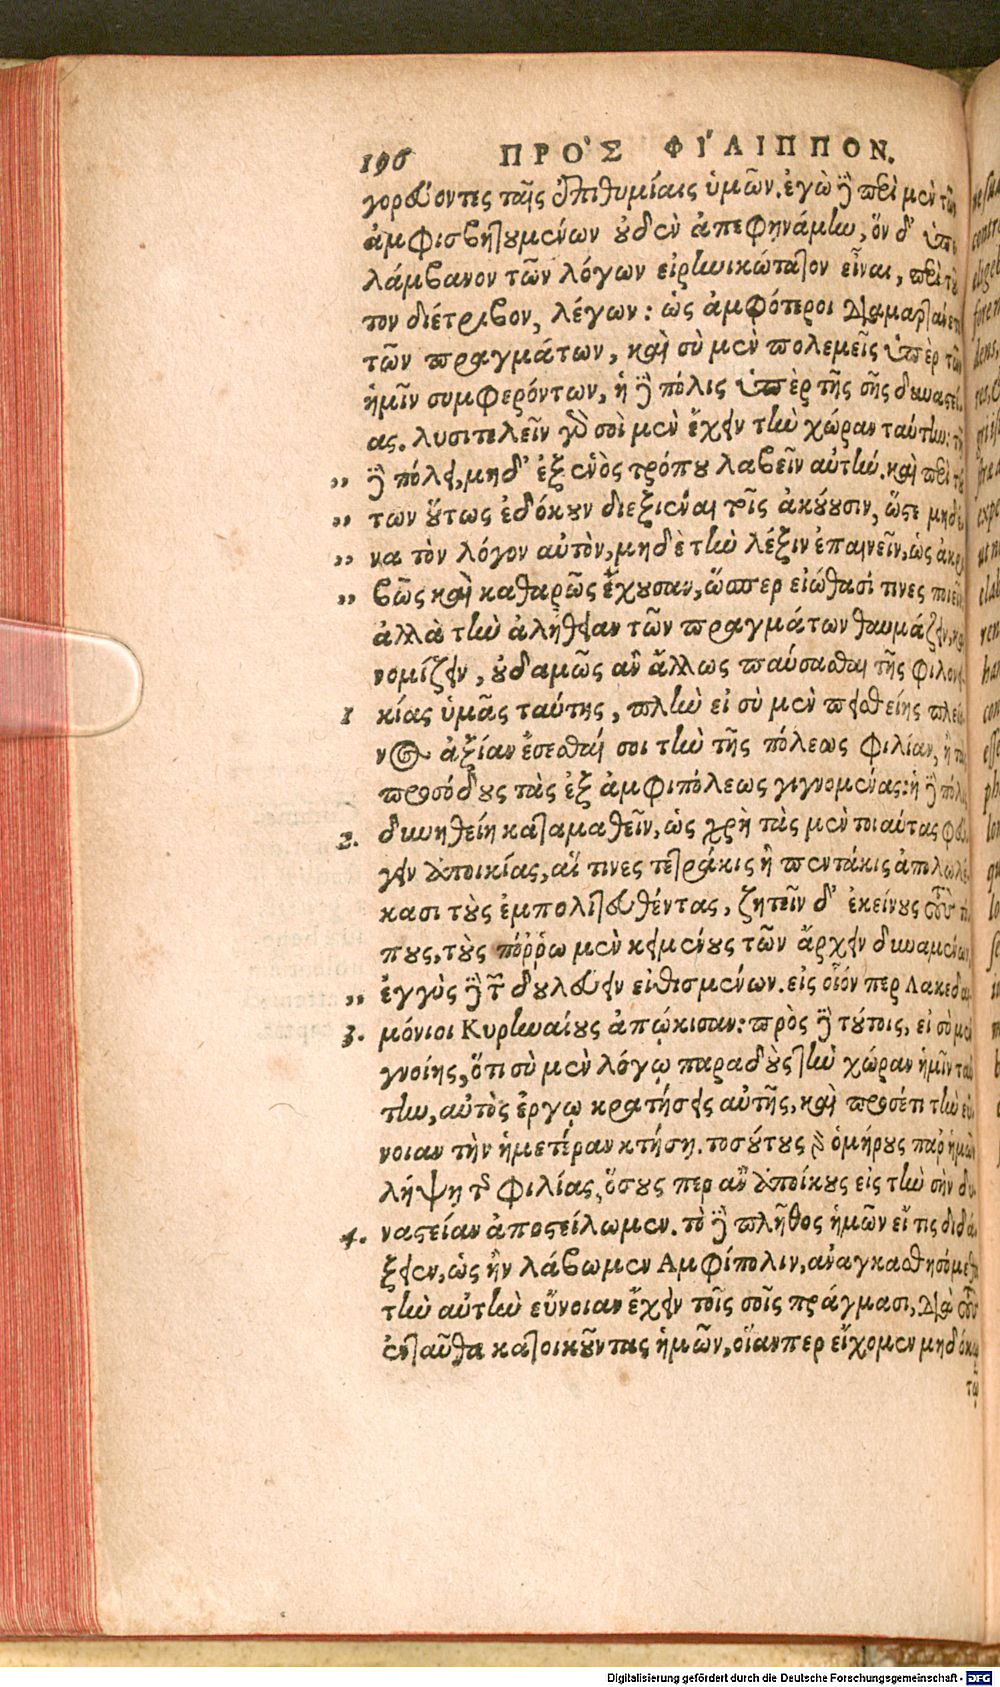 196 ΠΡΟ᾽Σ ΦΙ᾽ΛΙΠΠΟΝ.
γορεύοντες ταῖς ἐπιθυμίαις ὑμῶν. ἐγὼ δὲ περὶ μὲν τῶν
ἀμφισβητουμένων οὐδὲν ἀπεφηνάμην, ὃν δ' ὑπε
λάμβανον τῶν λόγων εἰρηνικώτατον εἶναι, περὶ τοῦ
τον διέτριβον, λέγων: ὡς ἀμφότεροι διαμαρτάνετε
τῶν πραγμάτων, καὶ σὺ μὲν πολεμεῖς ὑπὲρ τῶν
ἡμῖν συμφερόντων, ἡ δὲ πόλις ὑπὲρ τῆς σῆς δυναστεί
ας. λυσιτελεῖν γὰρ σοὶ μὲν ἔχειν τὴν χώραν ταύτην: τῇ
,, δὲ πόλει, μηδ' ἐξ ἑνὸς τρόπου λαβεῖν αὐτήν. καὶ περὶ τού
,, των οὕτως ἐδόκουν διεξιέναι τοῖς ἀκούουσιν, ὥστε μηδέ
,, να τὸν λόγον αὐτὸν, μηδὲ τὴν λέξιν ἐπαινεῖν, ὡς ἀκρι
,, βῶς καὶ καθαρῶς ἔχουσαν, ὥσπερ εἰώθασί τινες ποιεῖν,
ἀλλὰ τὴν ἀλήθειαν τῶν πραγμάτων θαυμάζειν, καὶ
νομίζειν, οὐδαμῶς ἂν ἄλλως παύσασθαι τῆς φιλονει
1 κίας ὑμᾶς ταύτης, πλὴν εἰ σὺ μὲν πεισθείης πλείο
νος ἀξίαν ἔσεσθαί σοι τὴν τῆς πόλεως φιλίαν, ἢ τὰς
προσόδους τὰς ἐξ ἀμφιπόλεως γιγνομένας: ἡ δὲ πόλις
2. δυνηθείη καταμαθεῖν, ὡς χρὴ τὰς μὲν τοιαύτας φεύ
γειν ἀποικίας, αἵ τινες τετράκις ἢ πεντάκις ἀπολωλέ
κασι τοὺς ἐμπολιτευθέντας, ζητεῖν δ' ἐκείνους τοὺς τό
πους, τοὺς πόῤῥω μὲν κειμένους τῶν ἄρχειν δυναμένων,
,, ἐγγὺς δὲ τῶν δουλεύειν εἰθισμένων. εἰς οἷόν περ Λακεδαι
3. μόνιοι Κυρηναίους ἀπῴκισαν: πρὸς δὲ τούτοις, εἰ σὺ μὲν
γνοίης, ὅτι σὺ μὲν λόγῳ παραδοὺς τὴν χώραν ἡμῖν ταύ
την, αὐτὸς ἔργῳ κρατήσεις αὐτῆς, καὶ προσέτι τὴν εὔ
νοιαν τὴν ἡμετέραν κτήσῃ. τοσούτους γὰρ ὁμήρους παρ' ἡμῶν
λήψῃ τῆς φιλίας, ὅσους περ ἂν ἀποίκους εἰς τὴν σὴν δυ
ναστείαν ἀποστείλωμεν. τὸ δὲ πλῆθος ἡμῶν εἴ τις διδά
4. ξειεν, ὡς ἢν λάβωμεν Αμφίπολιν, ἀναγκασθησόμεθα
τὴν αὐτὴν εὔνοιαν ἔχειν τοῖς σοῖς πράγμασι, διὰ τοὺς
ἐνταῦθα κατοικοῦντας ἡμῶν, οἵανπερ εἴχομεν μηδόκῳ
τῷ
Digitalisierung gefördert durch die Deutsche Forschungsgemeinschaft - DFG